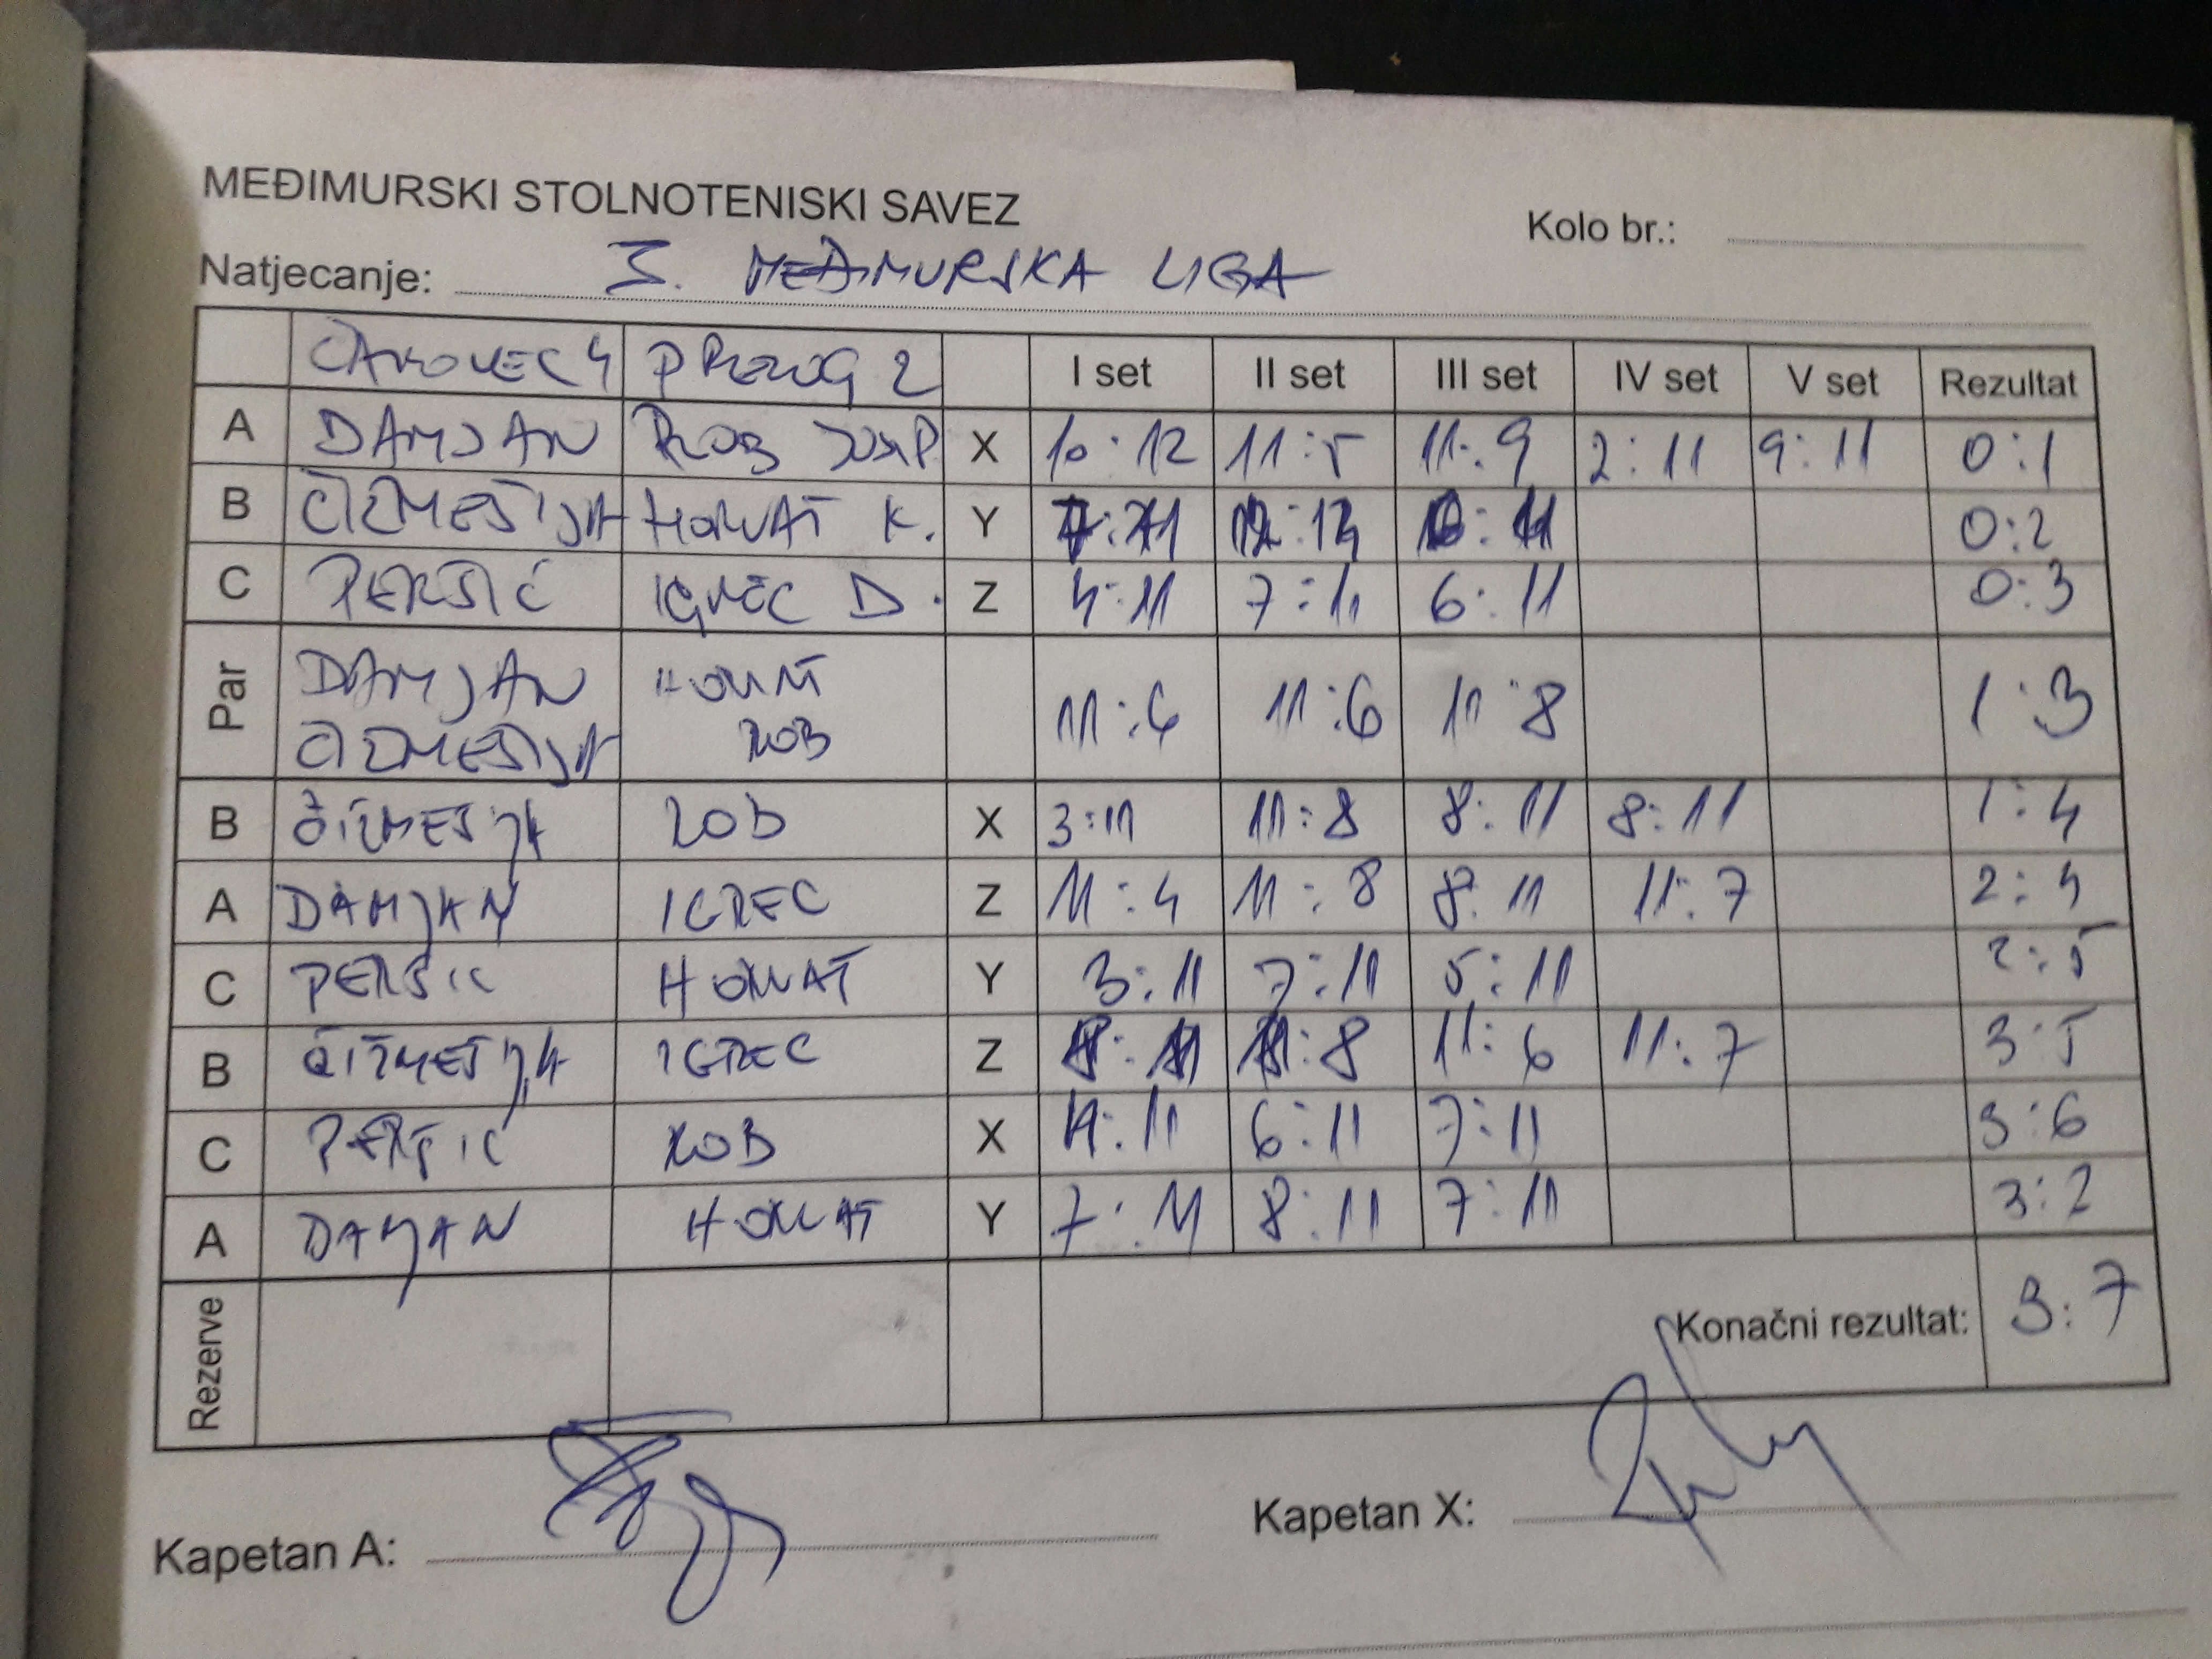 MEĐIMURSKI STOLNOTENISKI SAVEZ
Kolo br.:
Natjecanje: 3. MEĐIMURSKA LIGA
ČAKOVEC 4 PRELOG 2 I set II set III set IV set V set Rezultat
A DAMJAN ROB JOSIP X 10:12 11:5 11:9 2:11 9:11 0:1
B ČIZMEŠIJA HORVAT K. Y 0:2
C PERŠIĆ IGREC D. Z 4:11 7:11 6:11 0:3
Par DAMJAN HORVAT 11:6 11:6 11:8 1:3
ČIZMEŠIJA ROB
B ČIZMEŠIJA ROB X 3:11 11:8 8:11 8:11 1:4
A DAMJAN IGREC Z 11:4 11:8 8:11 11:7 2:4
C PERŠIĆ HORVAT Y 3:11 7:11 5:11 2:5
B ČIZMEŠIJA IGREC Z 11:6 11:7 3:5
C PERŠIĆ ROB X 4:11 6:11 7:11 3:6
A DAMJAN HORVAT Y 7:11 8:11 7:11 3:7
Rezerve Konačni rezultat: 3:7
Kapetan A: Kapetan X: